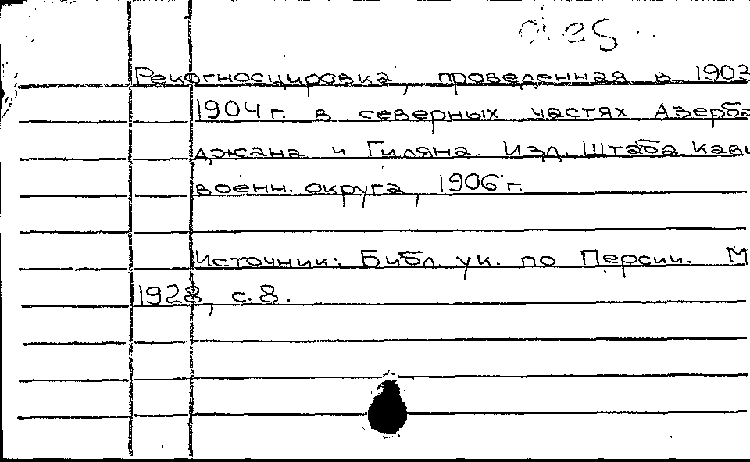 Рекогносцировка, проведенная в 1903
1904 г. в северных частях Азерба
джана и Гиляна. Изд. Штаба кавк
военн. округа, 1906 г.
Источник: Библ. ук. по Персии. М
1928, с. 8.